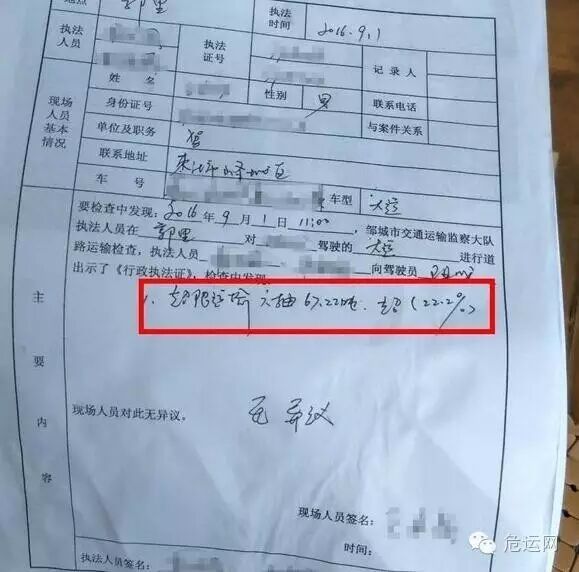 地点 郭里 执法时间 2016.9.1
执法人员 执法证号 记录人
联系电话
现场人员基本情况 姓名 性别 男
身份证号 与案件关系
单位及职务
联系地址
车号 车型 大运
主要内容
要检查中发现:2016年9月1日11:00
执法人员在 郭里 对 驾驶的 大运
邹城市交通运输监察大队
进行道
路运输检查,执法人员 向驾驶员
出示了《行政执法证》,检查中发现
1、超限运输 六轴 67.22吨. 超(22.2%)
现场人员对此无异议。 无异议
现场人员签名:
时间:
执法人员签名:
危运网